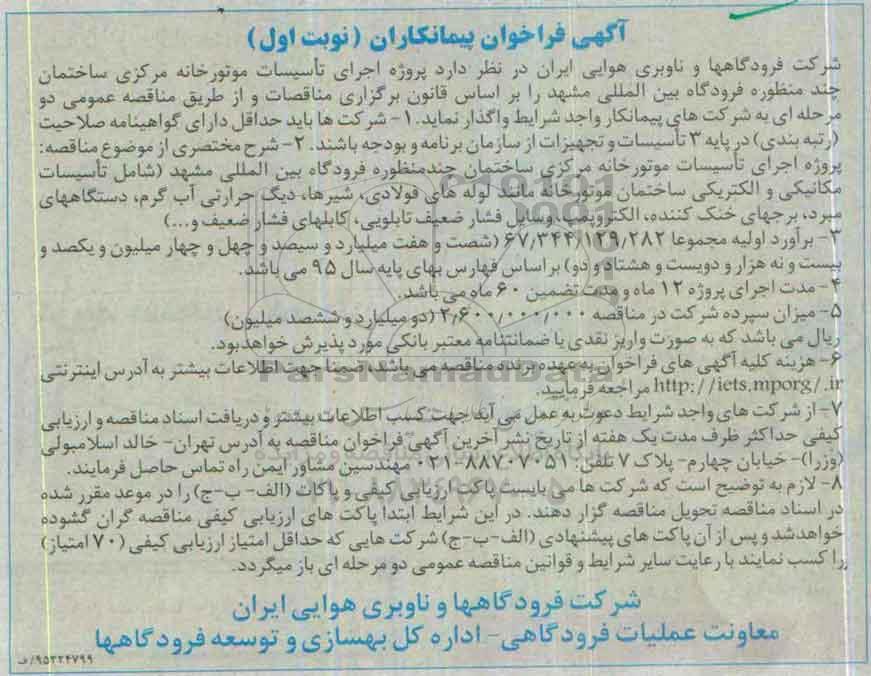 آگهی فراخوان پیمانکاران (نوبت اول)
شرکت فرودگاهها و ناوبری هوایی ایران در نظر دارد پروژه اجرای تأسیسات موتورخانه مرکزی ساختمان
چند منظوره فرودگاه بین المللی مشهد را بر اساس قانون برگزاری مناقصات و از طریق مناقصه عمومی دو
مرحله ای به شرکت های پیمانکار واجد شرایط واگذار نماید. ۱- شرکت ها باید حداقل دارای گواهینامه صلاحیت
(رتبه بندی) در پایه ۳ تأسیسات و تجهیزات از سازمان برنامه و بودجه باشند. ۲- شرح مختصری از موضوع مناقصه:
پروژه اجرای تأسیسات موتورخانه مرکزی ساختمان چندمنظوره فرودگاه بین المللی مشهد (شامل تأسیسات
مکانیکی و الکتریکی ساختمان موتورخانه مانند لوله های فولادی، شیرها، دیگ حرارتی آب گرم، دستگاههای
مبرد، برجهای خنک کننده، الکتروپمپ، وسایل فشار ضعیف تابلویی، کابلهای فشار ضعیف و...)
۳- برآورد اولیه مجموعا ۶۷٫۳۴۴٫۱۲۹٫۲۸۲ (شصت و هفت میلیارد و سیصد و چهل و چهار میلیون و یکصد و
بیست و نه هزار و دویست و هشتاد و دو) براساس فهارس بهای پایه سال ۹۵ می باشد.
۴- مدت اجرای پروژه ۱۲ ماه و مدت تضمین ۶۰ ماه می باشد.
۵- میزان سپرده شرکت در مناقصه ۲٫۶۰۰٫۰۰۰٫۰۰۰ (دو میلیارد و ششصد میلیون)
ریال می باشد که به صورت واریز نقدی یا ضمانتنامه معتبر بانکی مورد پذیرش خواهد بود.
۶- هزینه کلیه آگهی های فراخوان به عهده برنده مناقصه می باشد، ضمناً جهت اطلاعات بیشتر به آدرس اینترنتی
http://iets.mporg/.ir مراجعه فرمایید.
۷- از شرکت های واجد شرایط دعوت به عمل می آید جهت کسب اطلاعات بیشتر و دریافت اسناد مناقصه و ارزیابی
کیفی حداکثر ظرف مدت یک هفته از تاریخ نشر آخرین آگهی فراخوان مناقصه به آدرس تهران- خالد اسلامبولی
(وزرا)- خیابان چهارم- پلاک ۷ تلفن: ۸۸۷۰۷۰۵۱-۰۲۱ مهندسین مشاور ایمن راه تماس حاصل فرمایند.
۸- لازم به توضیح است که شرکت ها می بایست پاکت ارزیابی کیفی و پاکات (الف- ب-ج) را در موعد مقرر شده
در اسناد مناقصه تحویل مناقصه گزار دهند. در این شرایط ابتدا پاکت های ارزیابی کیفی مناقصه گران گشوده
خواهدشد و پس از آن پاکت های پیشنهادی (الف-ب-ج) شرکت هایی که حداقل امتیاز ارزیابی کیفی (۷۰ امتیاز)
را کسب نمایند با رعایت سایر شرایط و قوانین مناقصه عمومی دو مرحله ای باز میگردد.
شرکت فرودگاهها و ناوبری هوایی ایران
معاونت عملیات فرودگاهی- اداره کل بهسازی و توسعه فرودگاهها
۹۵۳۲۴۷۹۹/ف
ParsNamadData